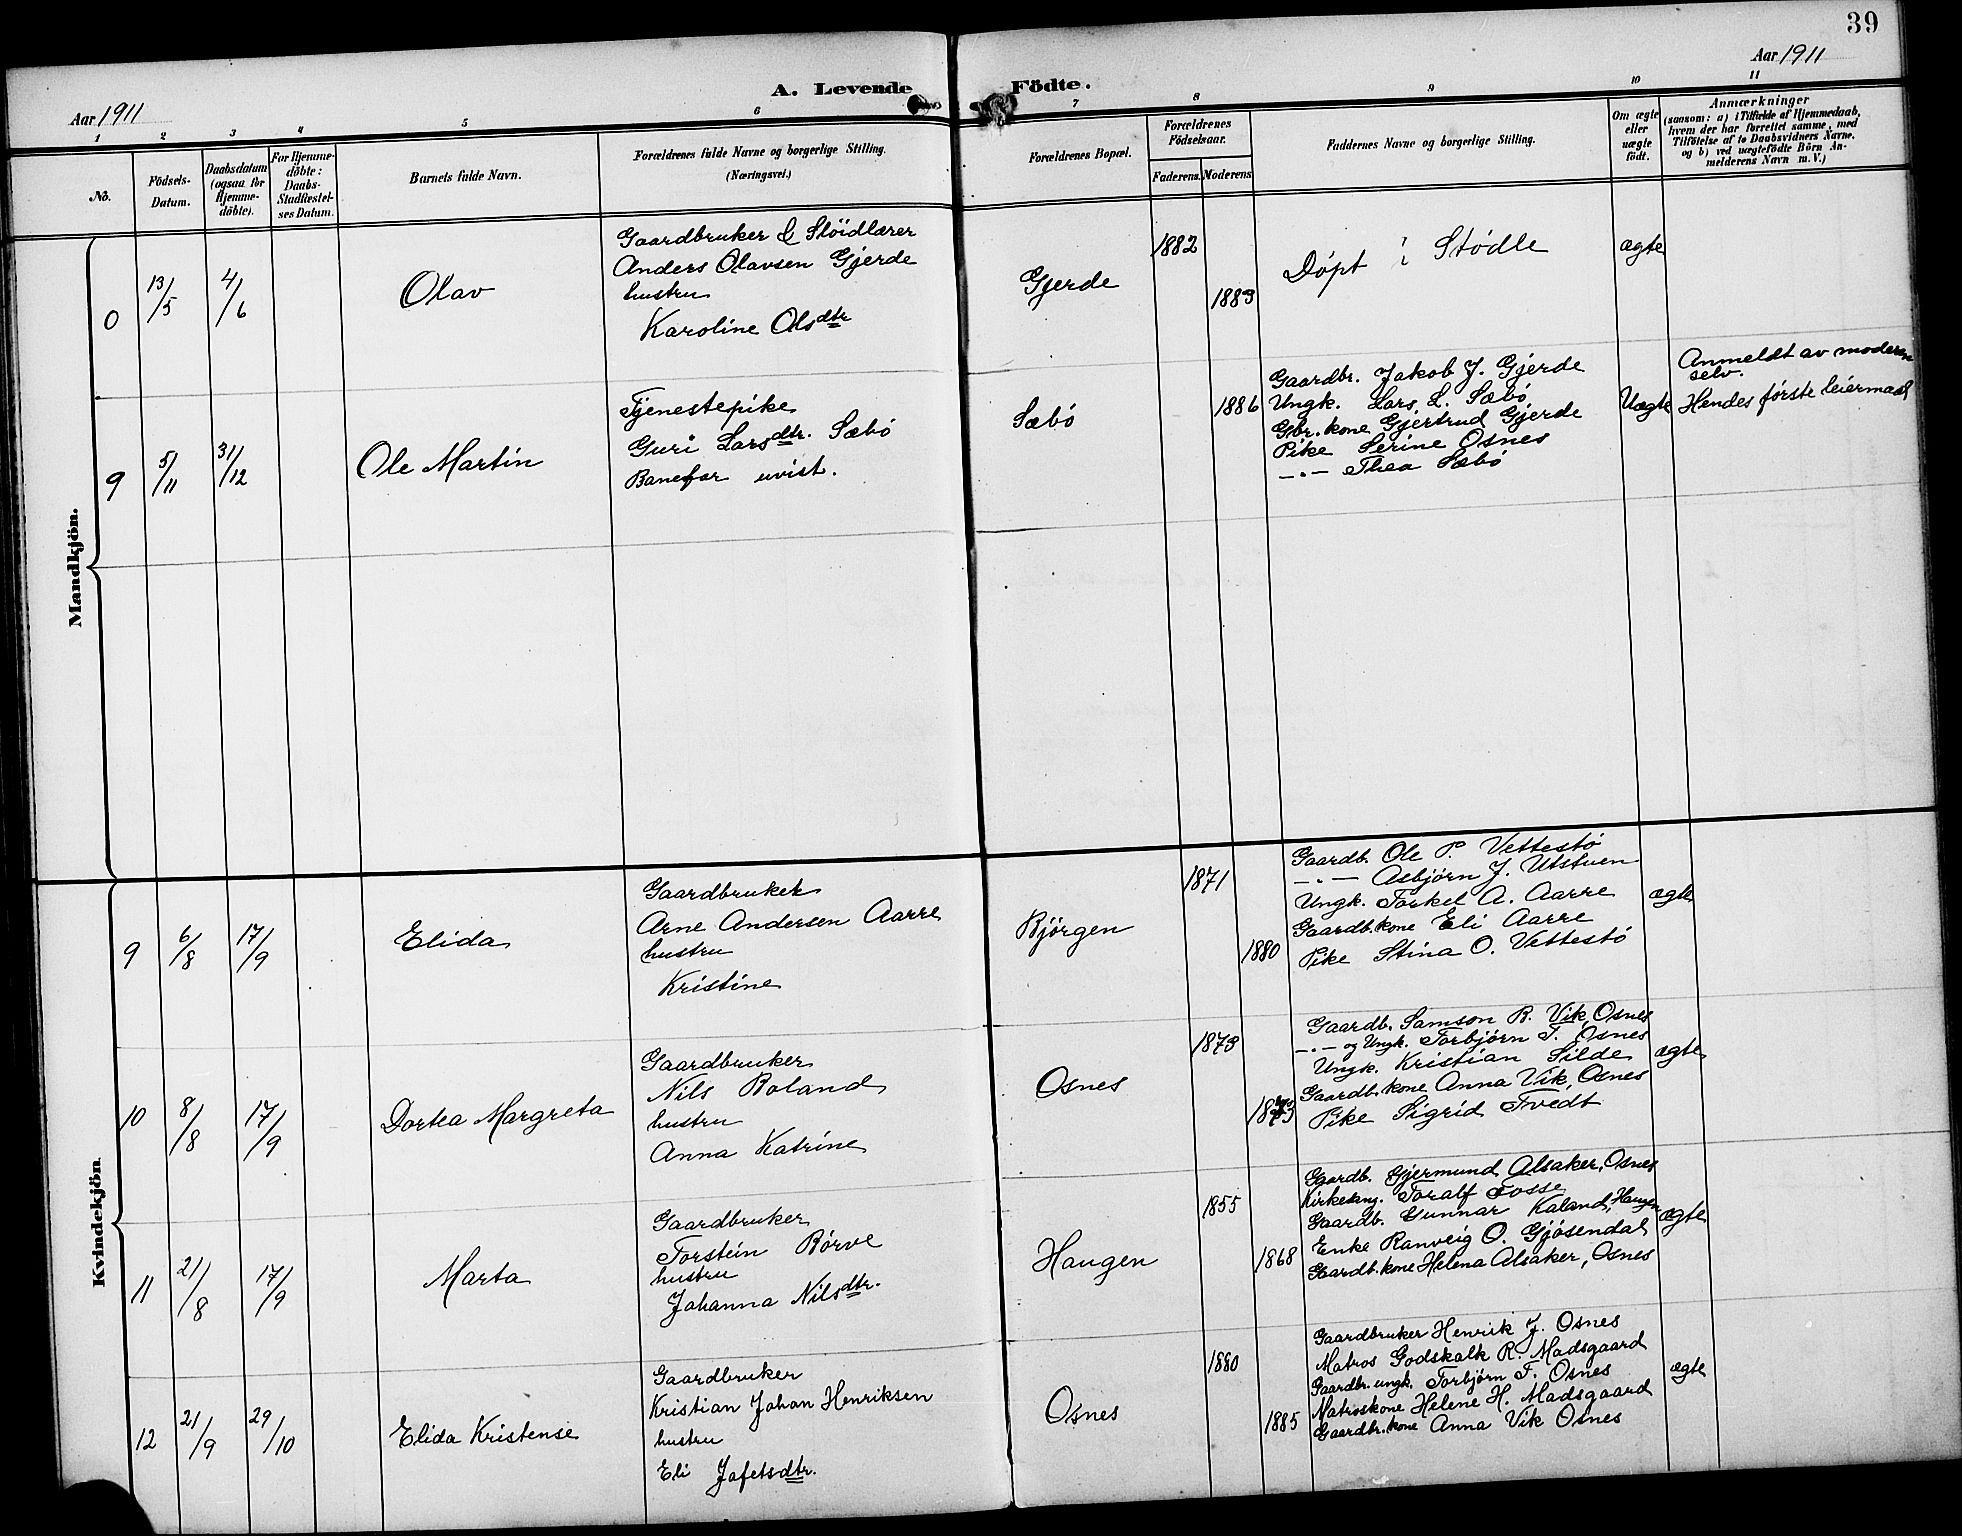 39
Aar 1911
A. Levende Födte.
Aar 1911
1 2 3 4 5 6 7 8 9 10 11
No.
Födsels-
Datum.
Daabsdatum
(ogsaa for
Hjemme-
döbte).
For Hjemme-
döbte:
Daabs-
Stadfæstel-
ses Datum.
Barnets fulde Navn.
Forældrenes fulde Navne og borgerlige Stilling.
(Næringsvei.)
Forældrenes Bopæl.
Forældrenes
Födselsaar.
Faderens. Moderens
Faddernes Navne og borgerlige Stilling.
Om ægte
eller
uægte
födt.
Anmærkninger
(saasom: a) i Tilfælde af Hjemmedaab,
hvem der har forrettet samme, med
Tilföielse af to Daabsvidners Navne,
og b) ved uægtefödte Börn An-
melderens Navn m. V.)
Mandkjön.
0
13/5
4/6
Olav
Gaardbruker & Slöidlærer
Anders Olavsen Gjerde
hustru
Karoline Olsdtr
Gjerde
1882
1883
Döpt i Stödle
ægte
9
5/11
31/12
Ole Martin
Tjenestepike
Guri Larsdtr. Sæbö
Banefar uvist.
Sæbö
1886
Gaardbr. Jakob J. Gjerde
Ungk. Lars L. Sæbö
Gbr. kone Gjertrud Gjerde
Pike Serine Osnes
-"- Thea Sæbö
Uægte
Anmeldt av moderen
selv.
Hendes förste leiermaal
Kvindekjön.
9
6/8
17/9
Elida
Gaardbruker
Arne Andersen Aarre
hustru
Kristine
Bjørgen
1871
1880
Gaardb. Ole P. Vettestö
-"- Asbjörn J. Utstuen
Ungk. Torkel A. Aarre
Gaardb.kone Eli Aarre
Pike Stina O. Vettestö
ægte
10
8/8
17/9
Dortea Margreta
Gaardbruker
Nils Boland
hustru
Anna Katrine
Osnes
1873
Gaardb. Samson R. Vik, Osnes
-"- og Ungk. Torbjörn T. Osnes
Ungk. Kristian Silde
Gaardb.kone Anna Vik, Osnes
Pike Sigrid Tvedt
ægte
11
21/8
17/9
Marta
Gaardbruker
Torstein Börve
hustru
Johanna Nilsdtr.
Haugen
1855
1868
Gaardb. Gjermund Alsaker, Osnes
Kirkesang. Toralf Fosse
Gaardb. Gunnar Kaland, Haugen
Enke Ranveig O. Gjösendal
Gaardb.kone Helena Alsaker, Osnes
ægte
12
21/9
29/10
Elida Kristense
Gaardbruker
Kristian Johan Henriksen
hustru
Eli Jafetsdtr.
Osnes
1880
1885
Gaardbruker Henrik J. Osnes
Matros Godskalk R. Madsgaard
Gaardbr. ungk. Torbjörn T. Osnes
Matroskone Helene H. Madsgaard
Gaardbr.kone Anna Vik Osnes
ægte